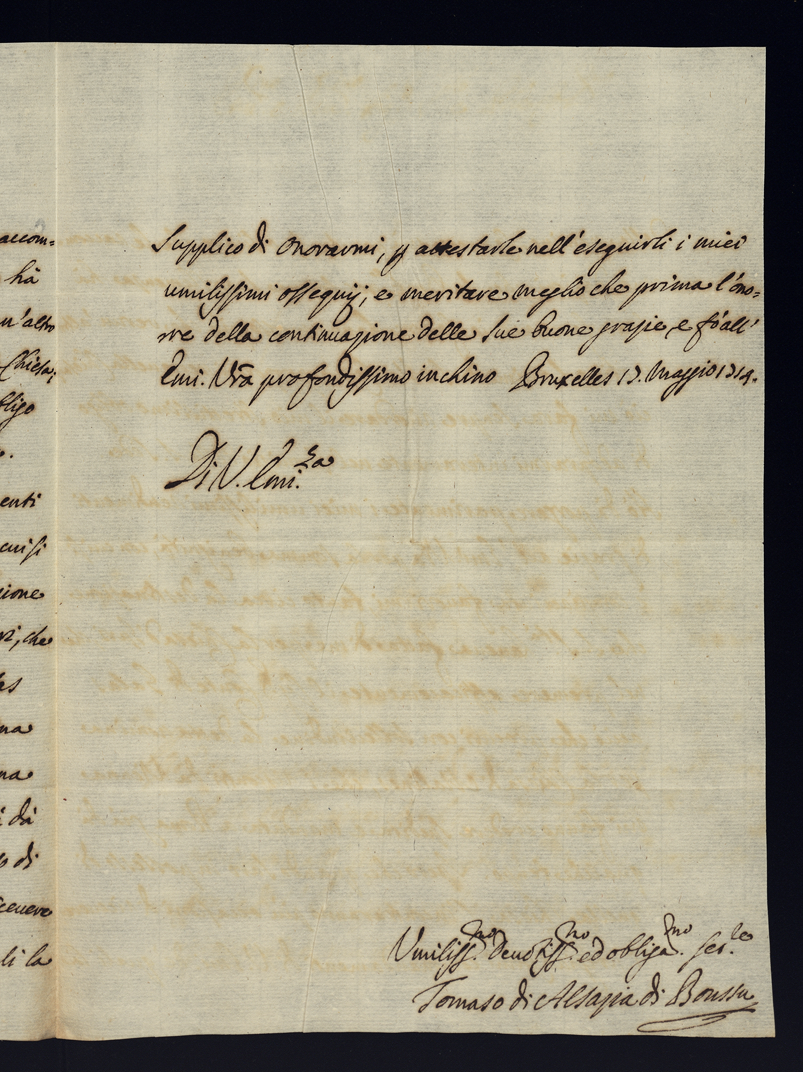 accom=
hà
un'altro
Chiesa;
bligo
enti
cuisi
zione
ri, che
na
na
dà
di
cevere
di la
Supplico di onorarmi, p attestarle nell'eseguirli i miei
umilissimi ossequij; e meritare meglio che prima l'ono=
re della continuazione delle sue buone grazie, e fò all'
Emi. Vra profondissimo inchino Bruxelles 17. Maggio 1714.
Di V. Emi.za
Umiliss.mo Devotiss.mo ed obliga.mo ser.le
Tomaso di Alsazia di Boussu